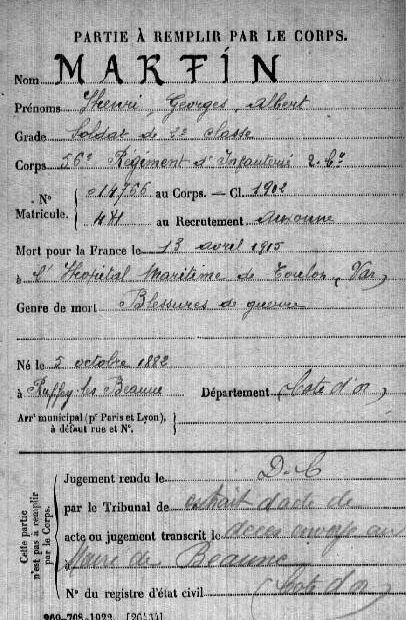 PARTIE À REMPLIR PAR LE CORPS.
Nom MARTIN
Prénoms Henri, Georges, Albert
Grade Soldat de 2e classe
Corps 56e Régiment d'Infanterie 2. Cie
N° Matricule. 014766 au Corps. — Cl. 1902
441 au Recrutement Auxonne
Mort pour la France le 13 avril 1915
à l'Hopital Maritime de Toulon (Var)
Genre de mort Blessures de guerre
Né le 5 octobre 1882
à Ruffey les Beaune Département (Cote d'or)
Arrt municipal (pr Paris et Lyon), à défaut rue et N°.
Cette partie n'est pas à remplir par le Corps.
Jugement rendu le D.C
par le Tribunal de extrait d'acte de
acte ou jugement transcrit le décès envoyé au
Maire de Beaune
N° du registre d'état civil (Cote d'or)
269-708-1922. [26434]